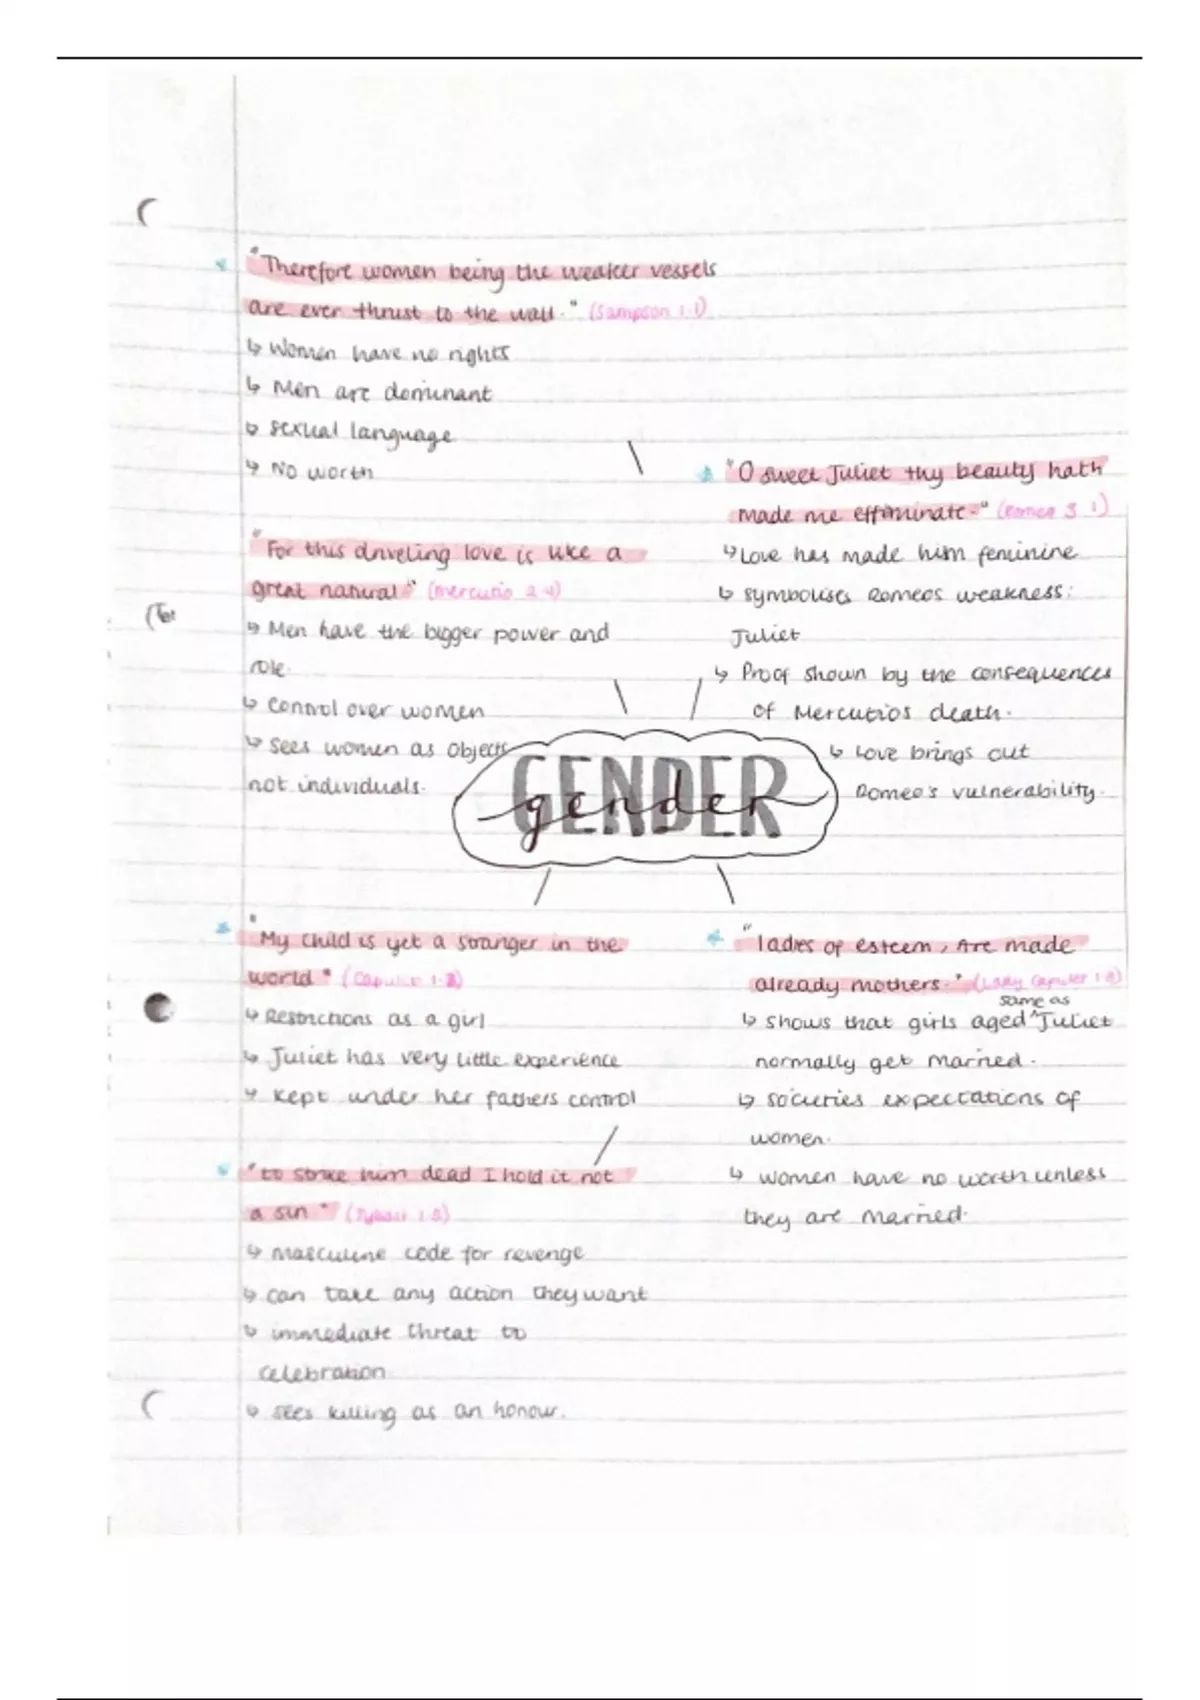 "Therefore women being the weaker vessels
are ever thrust to the wall." (Sampson 1.1)
↳ Women have no rights
↳ Men are dominant
↳ sexual language
↳ No worth
"For this driveling love is like a
great natural" (mercutio 2.4)
↳ Men have the bigger power and
role.
↳ Control over women
↳ Sees women as objects
not individuals.
"O sweet Juliet thy beauty hath
made me effiminate." (Romeo 3.1)
↳ Love has made him feminine
↳ symbolises Romeos weakness:
Juliet
↳ Proof shown by the consequences
of Mercutios death.
↳ Love brings out
Romeo's vulnerability.
GENDER
gender
"My child is yet a stranger in the
world" (Capulet 1.2)
↳ Restrictions as a girl
↳ Juliet has very little experience
↳ Kept under her fathers control
"to strike him dead I hold it not
a sin" (Tybalt 1.5)
↳ masculine code for revenge
↳ can take any action they want
↳ immediate threat to
celebration
↳ sees killing as an honour.
"ladies of esteem, Are made
already mothers." (Lady Capulet 1.3)
same as
↳ shows that girls aged ^ Juliet
normally get married.
↳ societies expectations of
women.
↳ women have no worth unless
they are married.